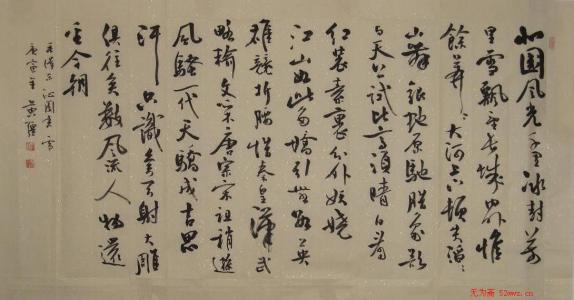 北国风光千里冰封萬
里雪飘望長城内外惟
餘莽莽大河上下顿失滔滔
山舞銀蛇原馳腊象欲
与天公试比高須晴日看
红装素裹分外妖娆
江山如此多嬌引無数英
雄競折腰惜秦皇漢武
略输文采唐宗宋祖稍逊
風騷一代天驕成吉思
汗只識弯弓射大雕
俱往矣数風流人物還
看今朝
毛泽东沁园春雪
无为斋 52wwz.cn